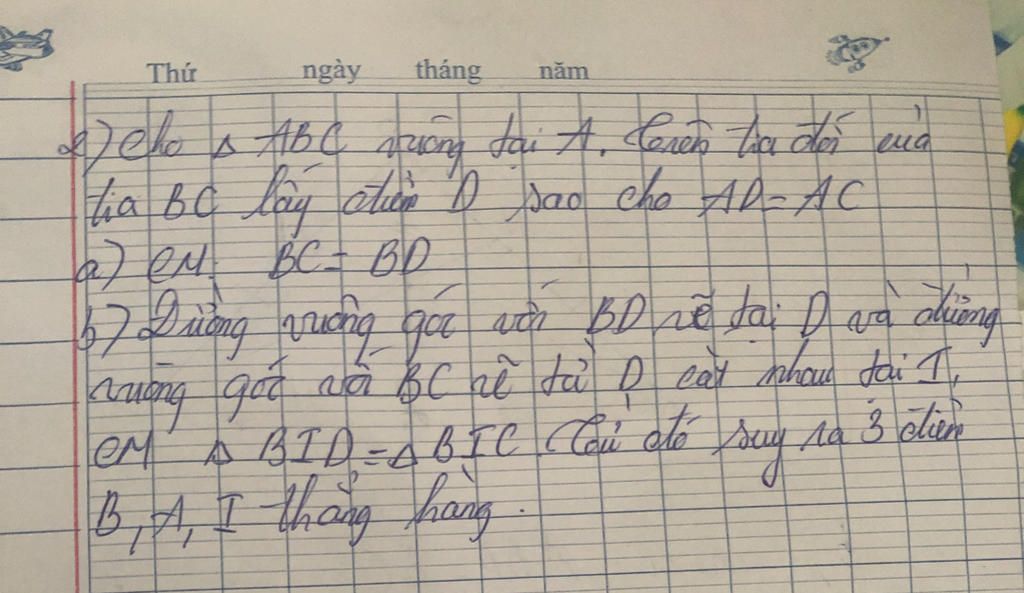 Thứ ngày tháng năm
2) Cho Δ ABC vuông tại A. Trên tia đối của
tia BC lấy điểm D sao cho AD = AC
a) CM: BC = BD
b) Đường vuông góc với BD vẽ tại D và đường
vuông góc với BC vẽ từ D cắt nhau tại I.
CM Δ BID = Δ BIC. Từ đó suy ra 3 điểm
B, A, I thẳng hàng.